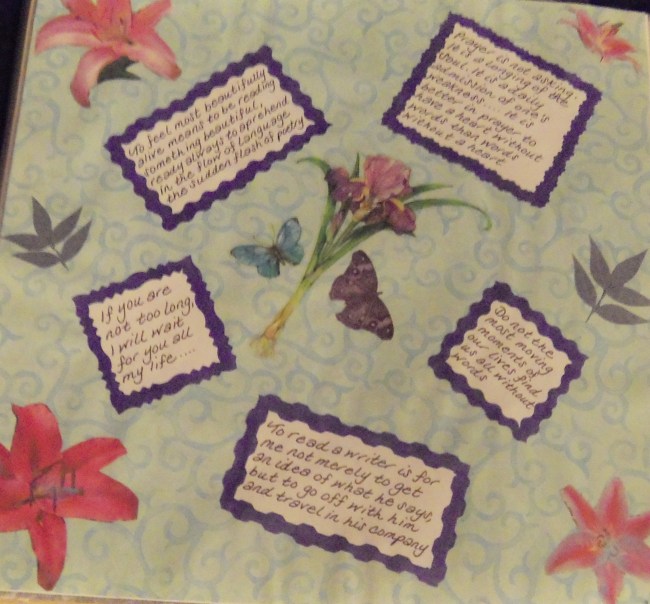 To feel most beautifully
alive means to be reading
something beautiful,
ready always to aprehend
in the flow of language
the sudden flash of poetry
Prayer is not asking.
It is a longing of the
soul. It is a daily
admission of one's
weakness.... it is
better in prayer to
have a heart without
words than words
without a heart
If you are
not too long,
I will wait
for you all
my life....
Do not the
most moving
moments of
our lives find
us all without
words
To read a writer is for
me not merely to get
an idea of what he says,
but to go off with him
and travel in his company